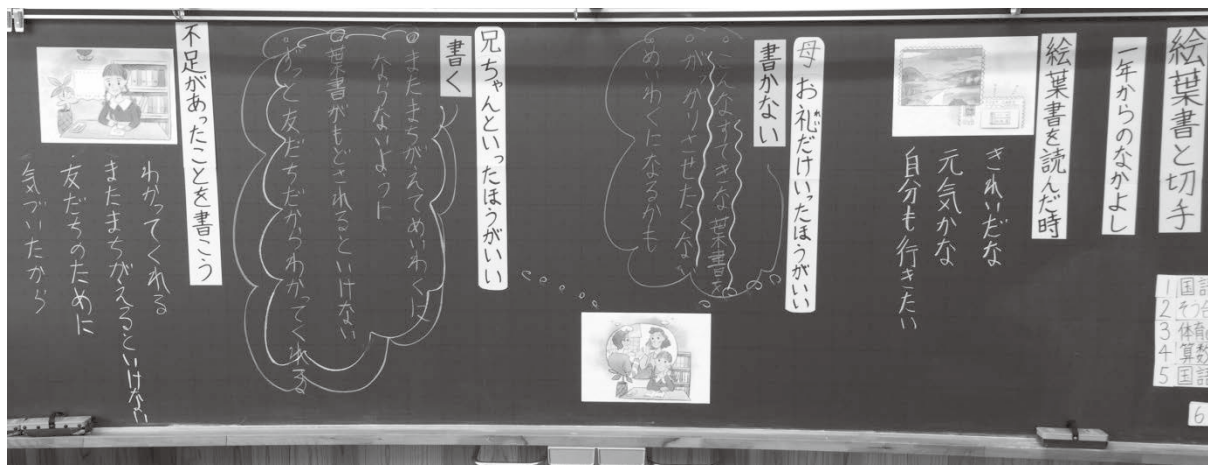 絵葉書と切手
一年からのなかよし
絵葉書を読んだ時
きれいだな
元気かな
自分も行きたい
母 お礼だけいったほうがいい
れい
書かない
こんなすてきな葉書を
がっかりさせたくない
めいわくになるかも
兄ちゃんといったほうがいい
書く
またまちがえてめいわくに
ならないように
葉書がもどされるといけない
ずっと友だちだからわかってくれる
不足があったことを書こう
わかってくれる
またまちがえるといけない
友だちのために
気づいたから
1 国語
2 そう合
3 体育
4 算数
5 国語
6